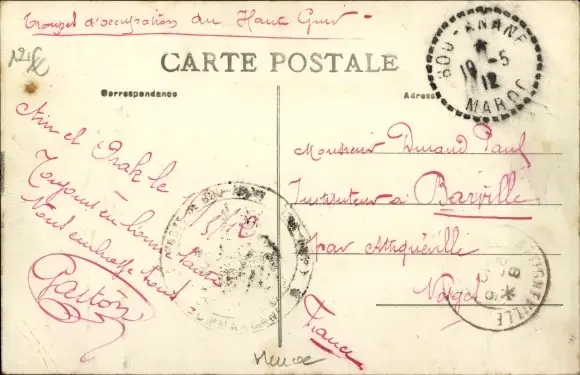 Troupes d'occupation du Haut Guir
CARTE POSTALE
Correspondance
Adresse
BOU-ANANE
19-5
12
MAROC
Aïn el Orak le
1/5/12
Toujours en bonne santé
Vous embrasse tous
Gaston
Monsieur Durand Paul
Instituteur à Barville
par Attignéville
Vosges
France
ATTIGNEVILLE
Maroc